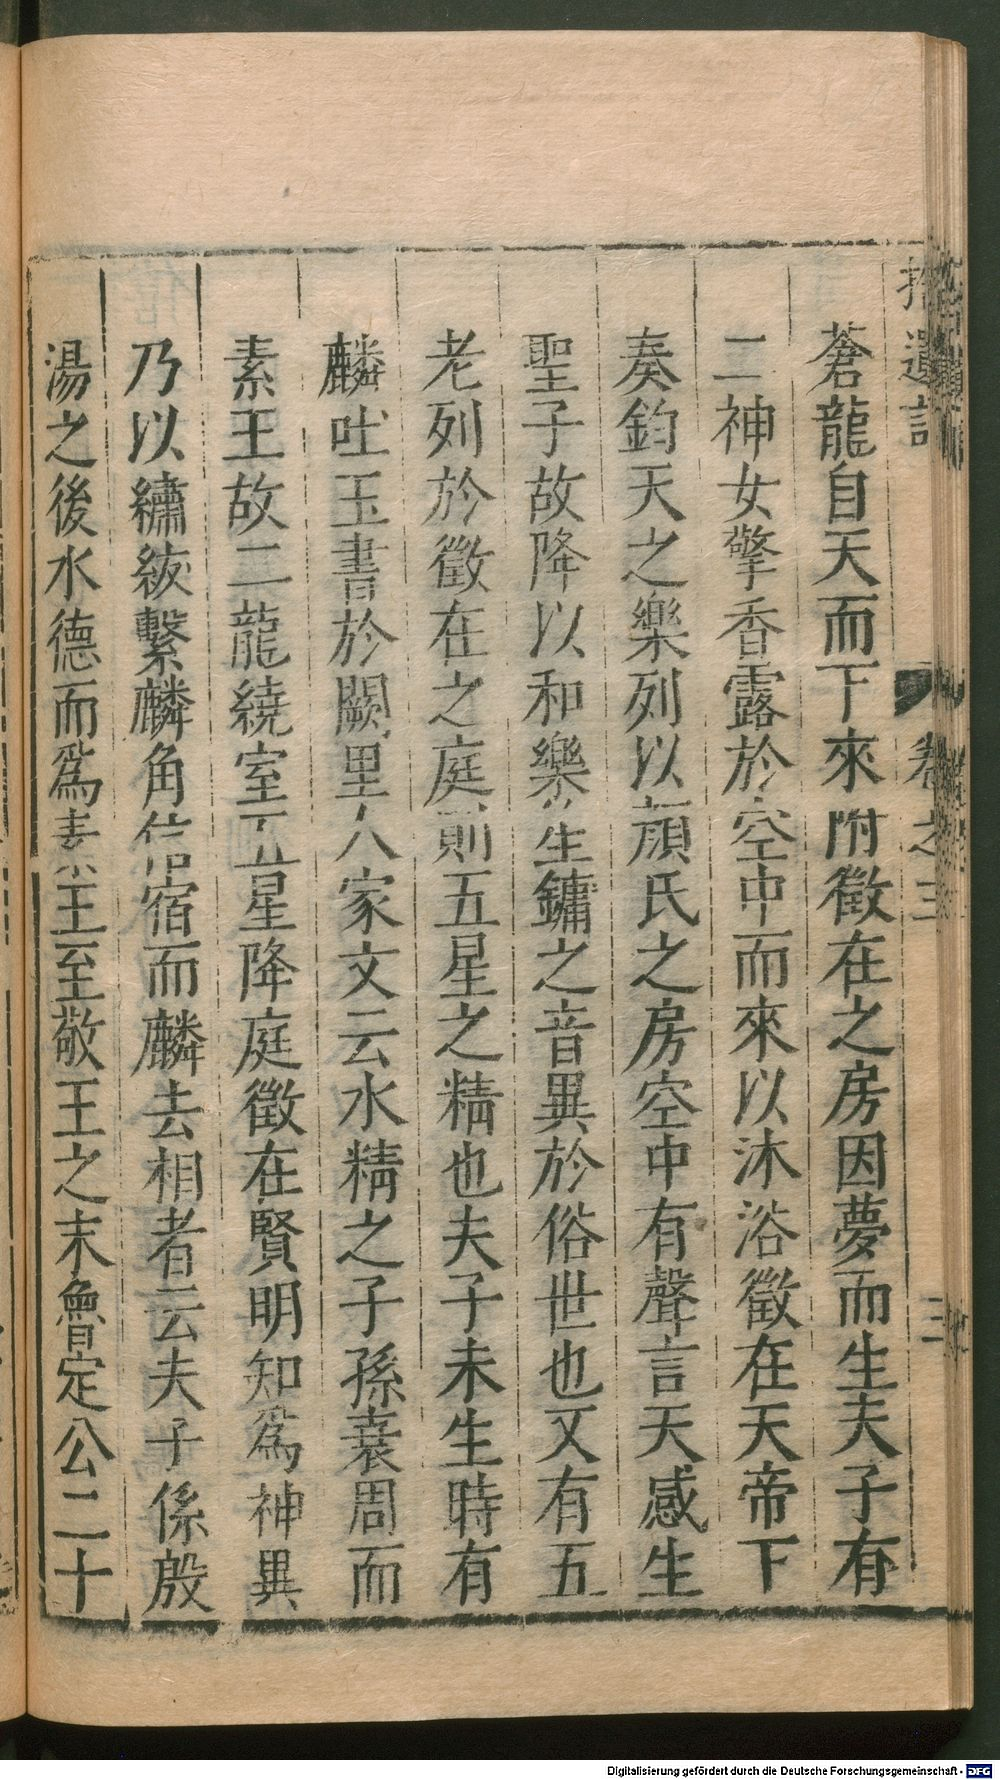 拾遺記 卷之三 三
蒼龍自天而下來附徵在之房因夢而生夫子有
二神女擎香露於空中而來以沐浴徵在天帝下
奏鈞天之樂列以顏氏之房空中有聲言天感生
聖子故降以和樂笙鏞之音異於俗世也又有五
老列於徵在之庭則五星之精也夫子未生時有
麟吐玉書於闕里人家文云水精之子孫衰周而
素王故二龍繞室五星降庭徵在賢明知為神異
乃以繡紱繫麟角信宿而麟去相者云夫子係殷
湯之後水德而為素王至敬王之末魯定公二十
Digitalisierung gefördert durch die Deutsche Forschungsgemeinschaft - DFG